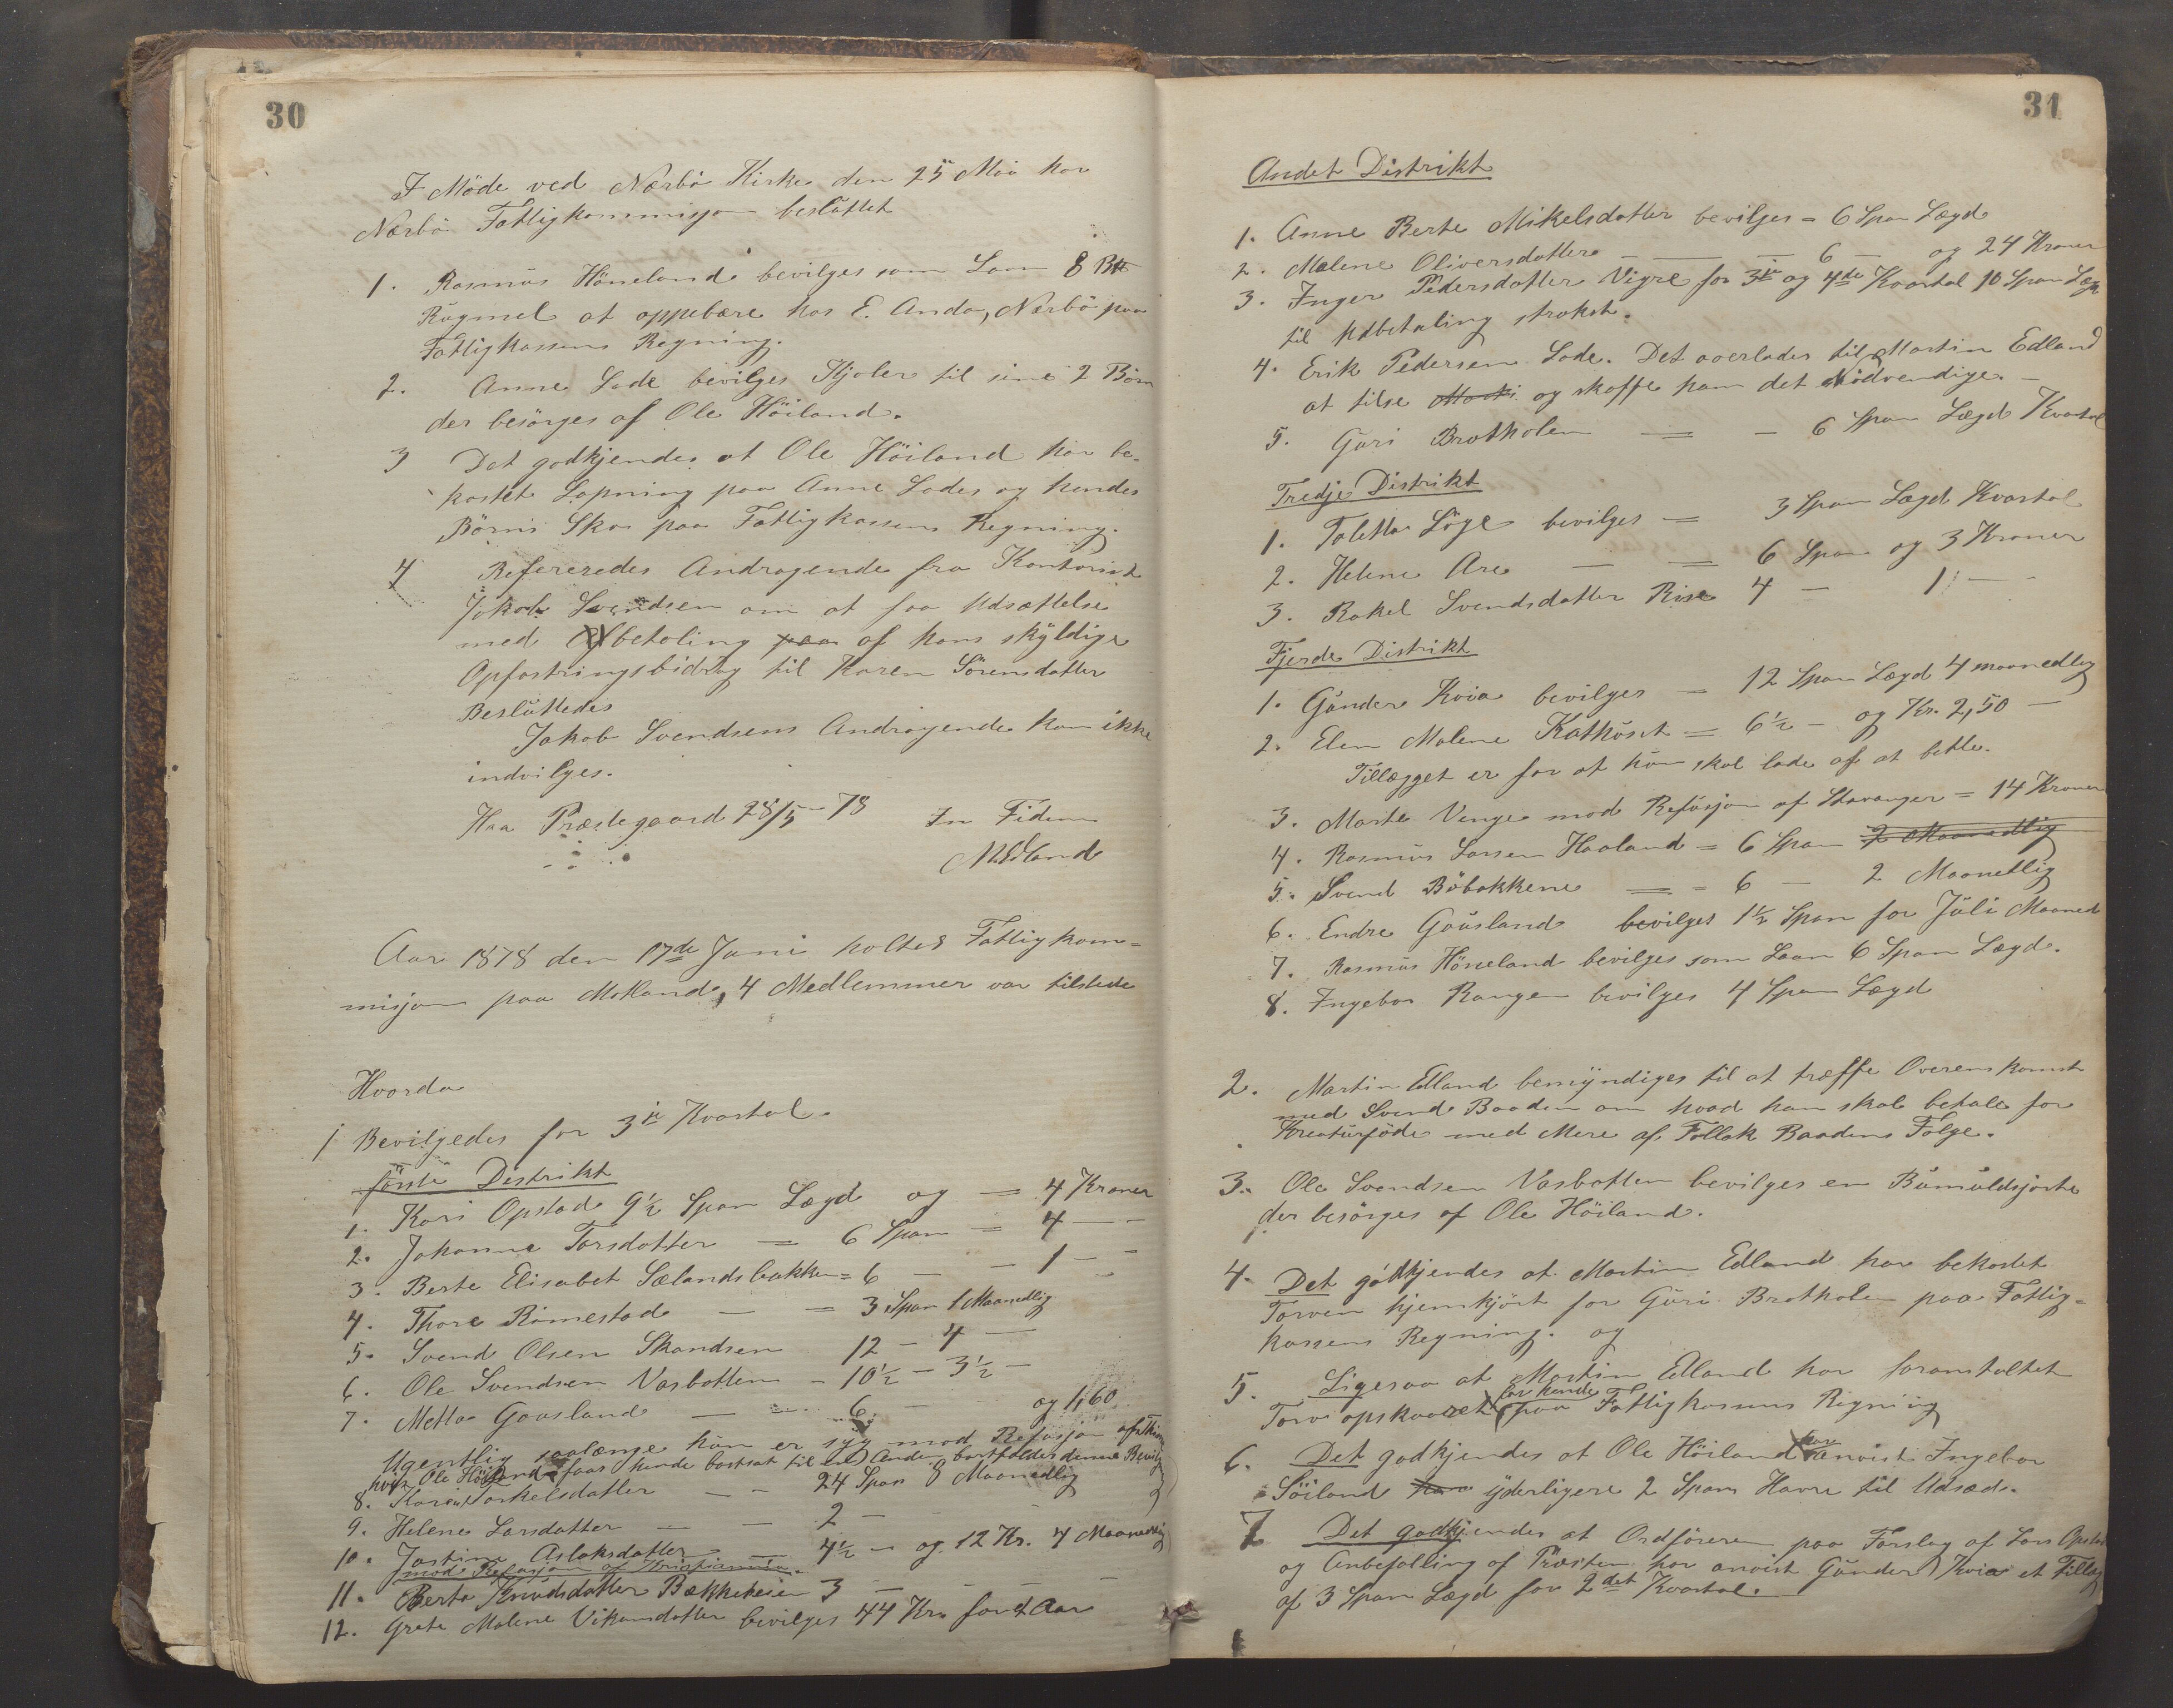 30
I Möde ved Nærbö Kirke den 25 Mai har
Nærbö Fattigkommisjon besluttet
1. Rasmus Höneland bevilges som Laan 8 B
Rugmel at oppebære hos E. Anda, Nærbö paa
Fattigkassens Regning.
2. Anne Lode bevilges Kjoler til sine 2 Börn
der besörges af Ole Höiland.
3 Det godkjendes at Ole Höiland har be-
kostet Lapning paa Anne Lodes og hendes
Börns Sko paa Fattigkassens Regning.
4 Refereredes Andragende fra Kontorist
Jakob Svendsen om at faa Udsættelse
med Afbetaling paa af hans skyldige
Opfostringsbidrag til Karen Sörensdatter
Besluttedes
Jakob Svendsens Andragende kan ikke
indvilges.
Haa Præstegaard 28/5 - 78 In Fidem
MEdland
Aar 1878 den 17de Juni holtes Fattigkom=
misjon paa Motland, 4 Medlemmer var tilstede
Hvorda
1 Bevilgedes for 3die Kvartal.
förste Distrikt
1. Kari Opstad 9½ Span Lægd og = 4 Kroner
2. Johanne Torsdatter = 6 Span = 4 —
3. Berte Elisabet Sælandsbakken = 6 — - 1 —
4. Thore Rimestad — = 3 Span 1 Maanedlig
5. Svend Olsen Skandsen 12 - 4 —
6. Ole Svendsen Varbotten - 10½ - 3½ -
7. Metta Gausland — 6. — og 1,60
Ugentlig saalænge hun er syg mod Refusjon af
hvis Ole Höiland faar hende bortsat til en Anden bortfalder denne
8. Karen Torkelsdatter — 24 Span 8 Maanedlig
9. Helene Larsdatter — — 2 —
10. Jastine Aslaksdatter — 4½ - og 12 Kr. 4 Maanedlig
mod Refusjon af Kristiansan.
11. Berta Knudsdatter Bækkeheien 3 — — — —
12. Grete Malene Vikansdatter bevilges 44 Kr. for 1 Aar
31
Andet Distrikt
1. Anne Berte Mikelsdatter bevilges = 6 Span Lægd
2. Malene Oliversdatter — — 6 — og 24 Kroner
3. Inger Pedersdatter Vigre for 3die og 4de Kvartal 10 Span Læg
til Udbetaling strakst.
4. Erik Pedersen Lode. Det overlades til Martin Edland
at tilse og skaffe ham det Nödvendige. —
5. Guri Bratholen = - 6 Span Lægd Kvartal
Tredje Distrikt
1. Taletta Löge bevilges = 3 Span Lægd Kvartal
2. Helene Are — = 6 Span og 3 Kroner
3. Rakel Svendsdatter Rise 4 — 1 —
Fjerde Distrikt
1. Gunder Kvia bevilges = 12 Span Lægd 4 maanedlig
2. Elen Malene Kathuset = 6½ - og Kr. 2,50 —
Tillægget er for at hun skal lade af at betle.
3. Marte Venge mod Refusjon af Stavanger = 14 Kroner
4. Rasmus Larsen Haaland = 6 Span 2 Maanedlig
5. Svend Böbakkene = = 6 — 2 Maanetlig
6. Endre Gausland bevilges 1½ Span for Juli Maaned
7. Rasmus Höneland bevilges som Laan 6 Span Lægd.
8. Ingebor Rangen bevilges 4 Span Lægd
2. Martin Edland bemyndiges til at træffe Overenskomst
med Svend Baaden om hvad han skal betale for
Kreaturföde med Mere af Tollak Baadens Fölge.
3. Ole Svendsen Varbotten bevilges en Bumuldsjorte
der besörges af Ole Höiland.
4. Det godkjendes at Martin Edland har bekostet
Torven hjemkjört for Guri Bratholen paa Fattig=
kassens Regning. og
5. Ligesaa at Martin Edland har foranstaltet
Torv opskaaret for hende paa Fattigkassens Regning
6. Det godkjendes at Ole Höiland har anvist Ingebor
Söiland har yderligere 2 Span Havre til Udsæd.
7 Det godkjendes at Ordföreren paa Forslag af Lars Opstad
og Anbefalling af Præsten har anvist Gunder Kvia et Tillæg
af 3 Span Lægd for 2det Kvartal.